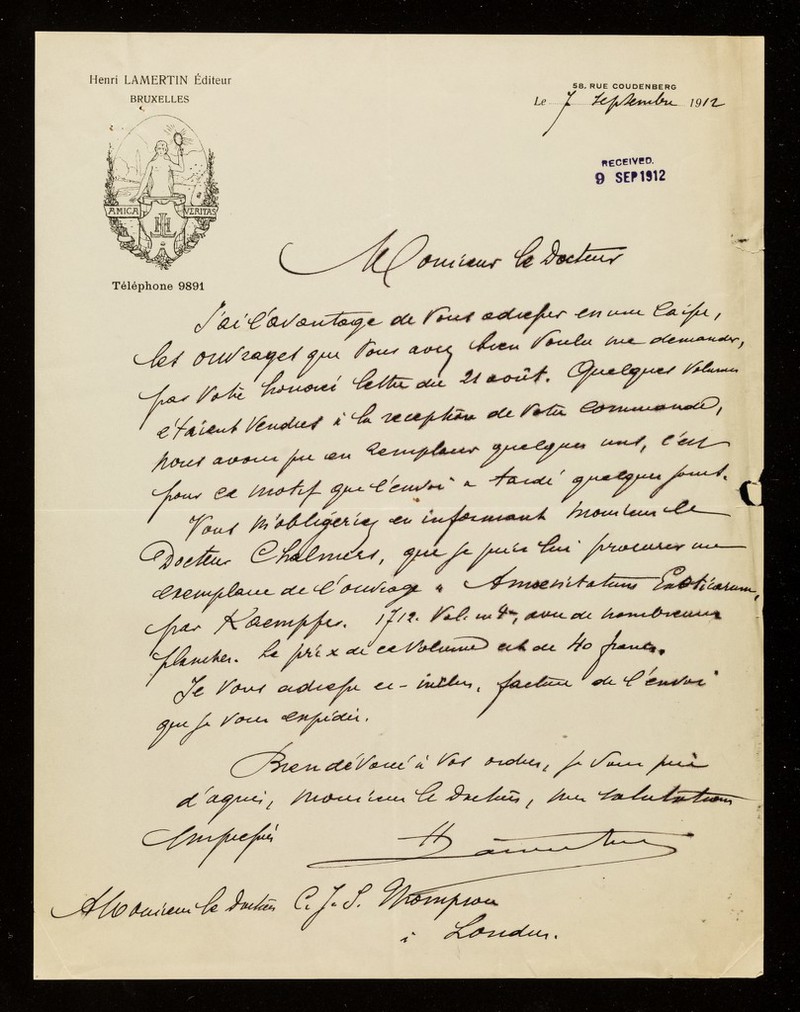 Henri LAMERTIN Éditeur
BRUXELLES
58, RUE COUDENBERG
Le 7 Septembre 1912
RECEIVED.
9 SEP 1912
AMICA VERITAS
HL
Téléphone 9891
Monsieur le Docteur
J'ai l'avantage de vous adresser en une caisse,
les ouvrages que vous avez bien voulu me demander,
par votre honoré lettre du 21 août. Quelques volumes
étaient vendus à la reception de votre commande,
nous avons pu en remplacer quelques uns, c'est
pour ce motif que l'envoi a tardé quelques jours.
Vous m'obligeriez en informant Monsieur le
Docteur Chalmers, que je puis lui procurer un
exemplaire de l'ouvrage " Amoenitatum Exoticarum,
par Kaempfer. 1712. Vol. in 4°, avec de nombreuses
planches. Le prix de ce volume est de 40 francs.
Je vous adresse ci-inclus, facture de l'envoi
que je vous expédie.
Bien dévoué à vos ordres, je vous prie
d'agréer, Monsieur le Docteur, mes salutations
empressées
H Lamertin
A Monsieur le Docteur C. J. S. Thompson
à Londres.